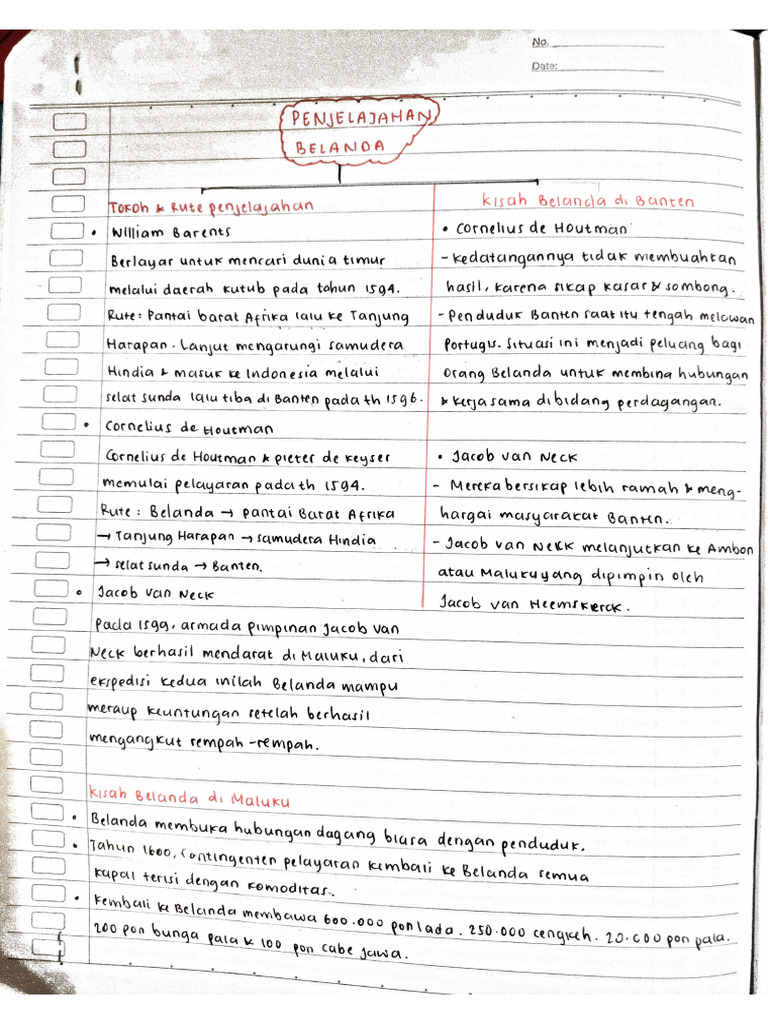 No.
Date:
PENJELAJAHAN
BELANDA
Tokoh & Rute penjelajahan
• William Barents
Berlayar untuk mencari dunia timur
melalui daerah kutub pada tahun 1594.
Rute: Pantai barat Afrika lalu ke Tanjung
Harapan. Lanjut mengarungi samudera
Hindia & masuk ke Indonesia melalui
selat sunda lalu tiba di Banten pada th 1596.
• Cornelius de Houtman
Cornelius de Houtman & pieter de keyser
memulai pelayaran pada th 1594.
Rute: Belanda → pantai Barat Afrika
→ Tanjung Harapan → samudera Hindia
→ selat sunda → Banten.
• Jacob van Neck
Pada 1599, armada pimpinan Jacob van
Neck berhasil mendarat di Maluku, dari
ekspedisi kedua inilah Belanda mampu
meraup keuntungan setelah berhasil
mengangkut rempah-rempah.
kisah Belanda di Banten
• Cornelius de Houtman
- kedatangannya tidak membuahkan
hasil, karena sikap kasar & sombong.
- Penduduk Banten saat itu tengah melawan
Portugis. Situasi ini menjadi peluang bagi
orang Belanda untuk membina hubungan
& kerja sama dibidang perdagangan.
• Jacob van Neck
- Mereka bersikap lebih ramah & meng-
hargai masyarakat Banten.
- Jacob van Nekk melanjutkan ke Ambon
atau Maluku yang dipimpin oleh
Jacob van Heemskerck.
kisah Belanda di Maluku
• Belanda membuka hubungan dagang biasa dengan penduduk.
• Tahun 1600, contingenten pelayaran kembali ke Belanda semua
kapal terisi dengan komoditas.
• kembali ke Belanda membawa 600.000 pon lada. 250.000 cengkeh. 20.000 pon pala.
200 pon bunga pala & 100 pon cabe jawa.